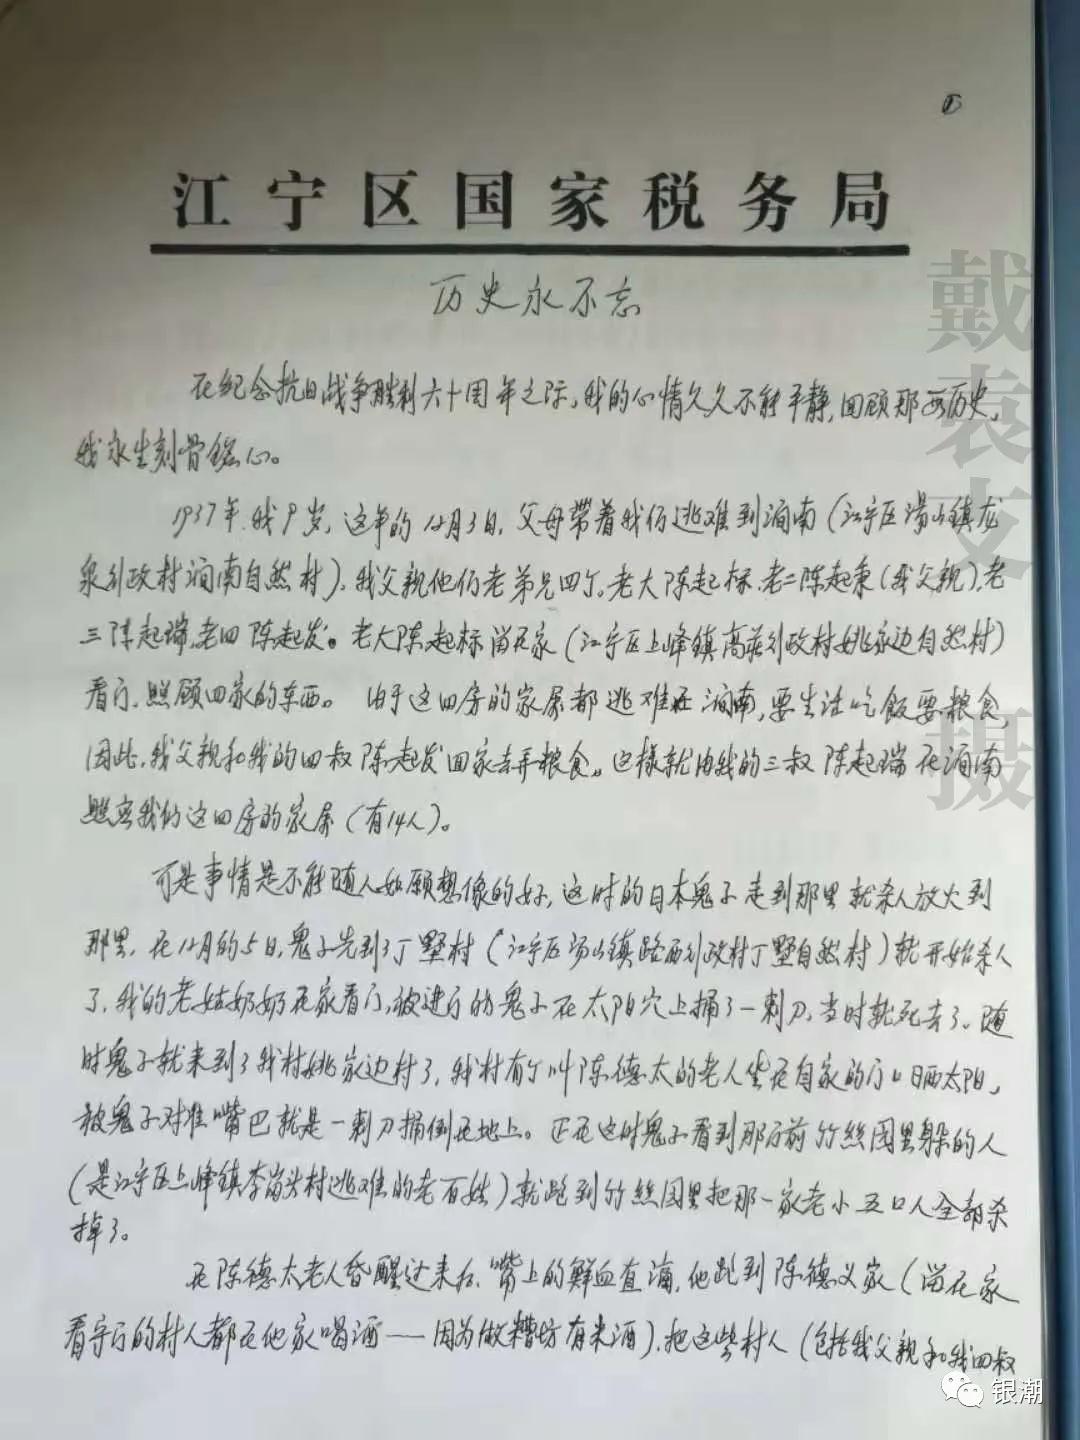 ①
江宁区国家税务局
历史永不忘
在纪念抗日战争胜利六十周年之际，我的心情久久不能平静，回顾那段历史，
我永生刻骨铭心。
1937年，我9岁，这年的12月3日，父母带着我们逃难到涧南（江宁区汤山镇龙
泉行政村涧南自然村），我父亲他们老弟兄四个，老大陈起标、老二陈起秉（我父亲），老
三陈起瑞，老四陈起发。老大陈起标留在家（江宁区上峰镇高庄行政村姚家边自然村）
看门，照顾四家的东西。由于这四房的家属都逃难在涧南，要生活吃饭要粮食，
因此，我父亲和我的四叔陈起发回家去弄粮食。这样就由我的三叔陈起瑞在涧南
照应我们这四房的家属（有14人）。
可是事情是不能随人如愿想像的好，这时的日本鬼子走到那里就杀人放火到
那里，在12月的5日，鬼子先到了丁墅村（江宁区汤山镇路西行政村丁墅自然村）就开始杀人
了，我的老姑奶奶在家看门，被进门的鬼子在太阳穴上捅了一刺刀，当时就死去了。随
时鬼子就来到了我村姚家边村了，我村有个叫陈德太的老人坐在自家的门口晒太阳，
被鬼子对准嘴巴就是一刺刀捅倒在地上。正在这时鬼子看到那门前竹丝园里躲的人
（是江宁区上峰镇李岗头村逃难的老百姓）就跑到竹丝园里把那一家老小五口人全部杀
掉了。
在陈德太老人昏醒过来后，嘴上的鲜血直淌，他跑到陈德义家（留在家
看守门的村人都在他家喝酒——因为做糟坊有米酒），把这些村人（包括我父亲和我四叔
戴袁支 摄
银潮